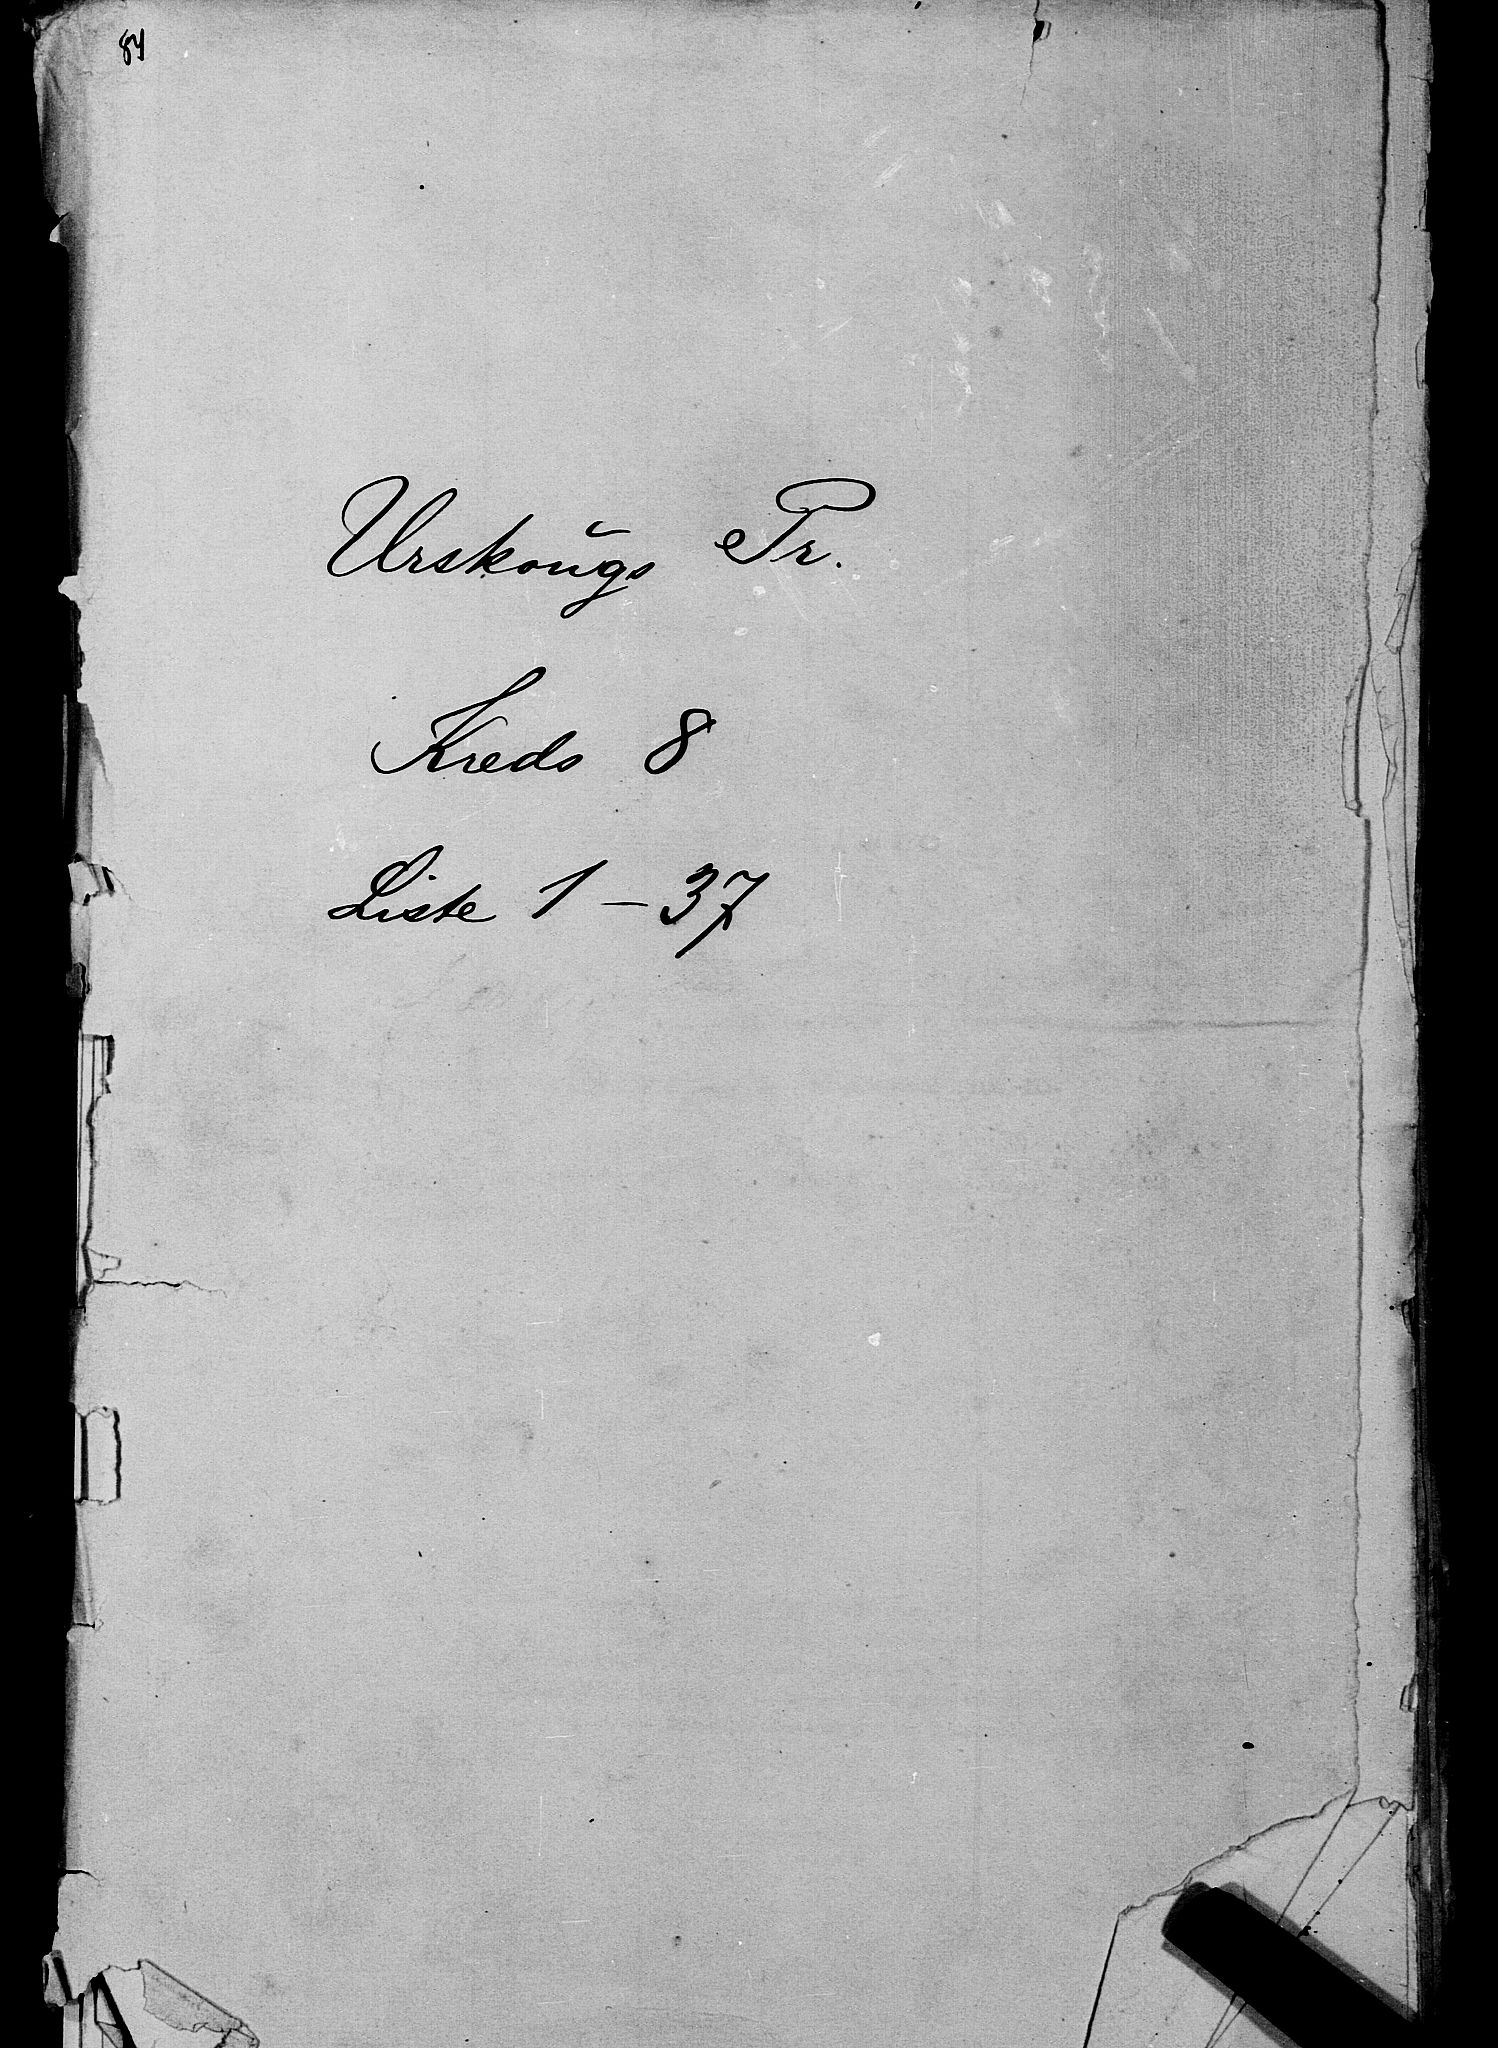 84
Urskougs Pr.
Kreds 8
Liste 1 - 37